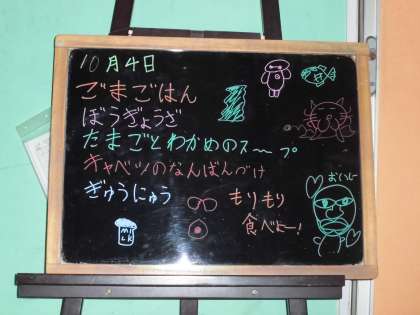 10月4日
ごまごはん
ぼうぎょうざ
たまごとわかめのスープ
キャベツのなんばんづけ
ぎゅうにゅう
MILK
もりもり
食べよー!
おいしー